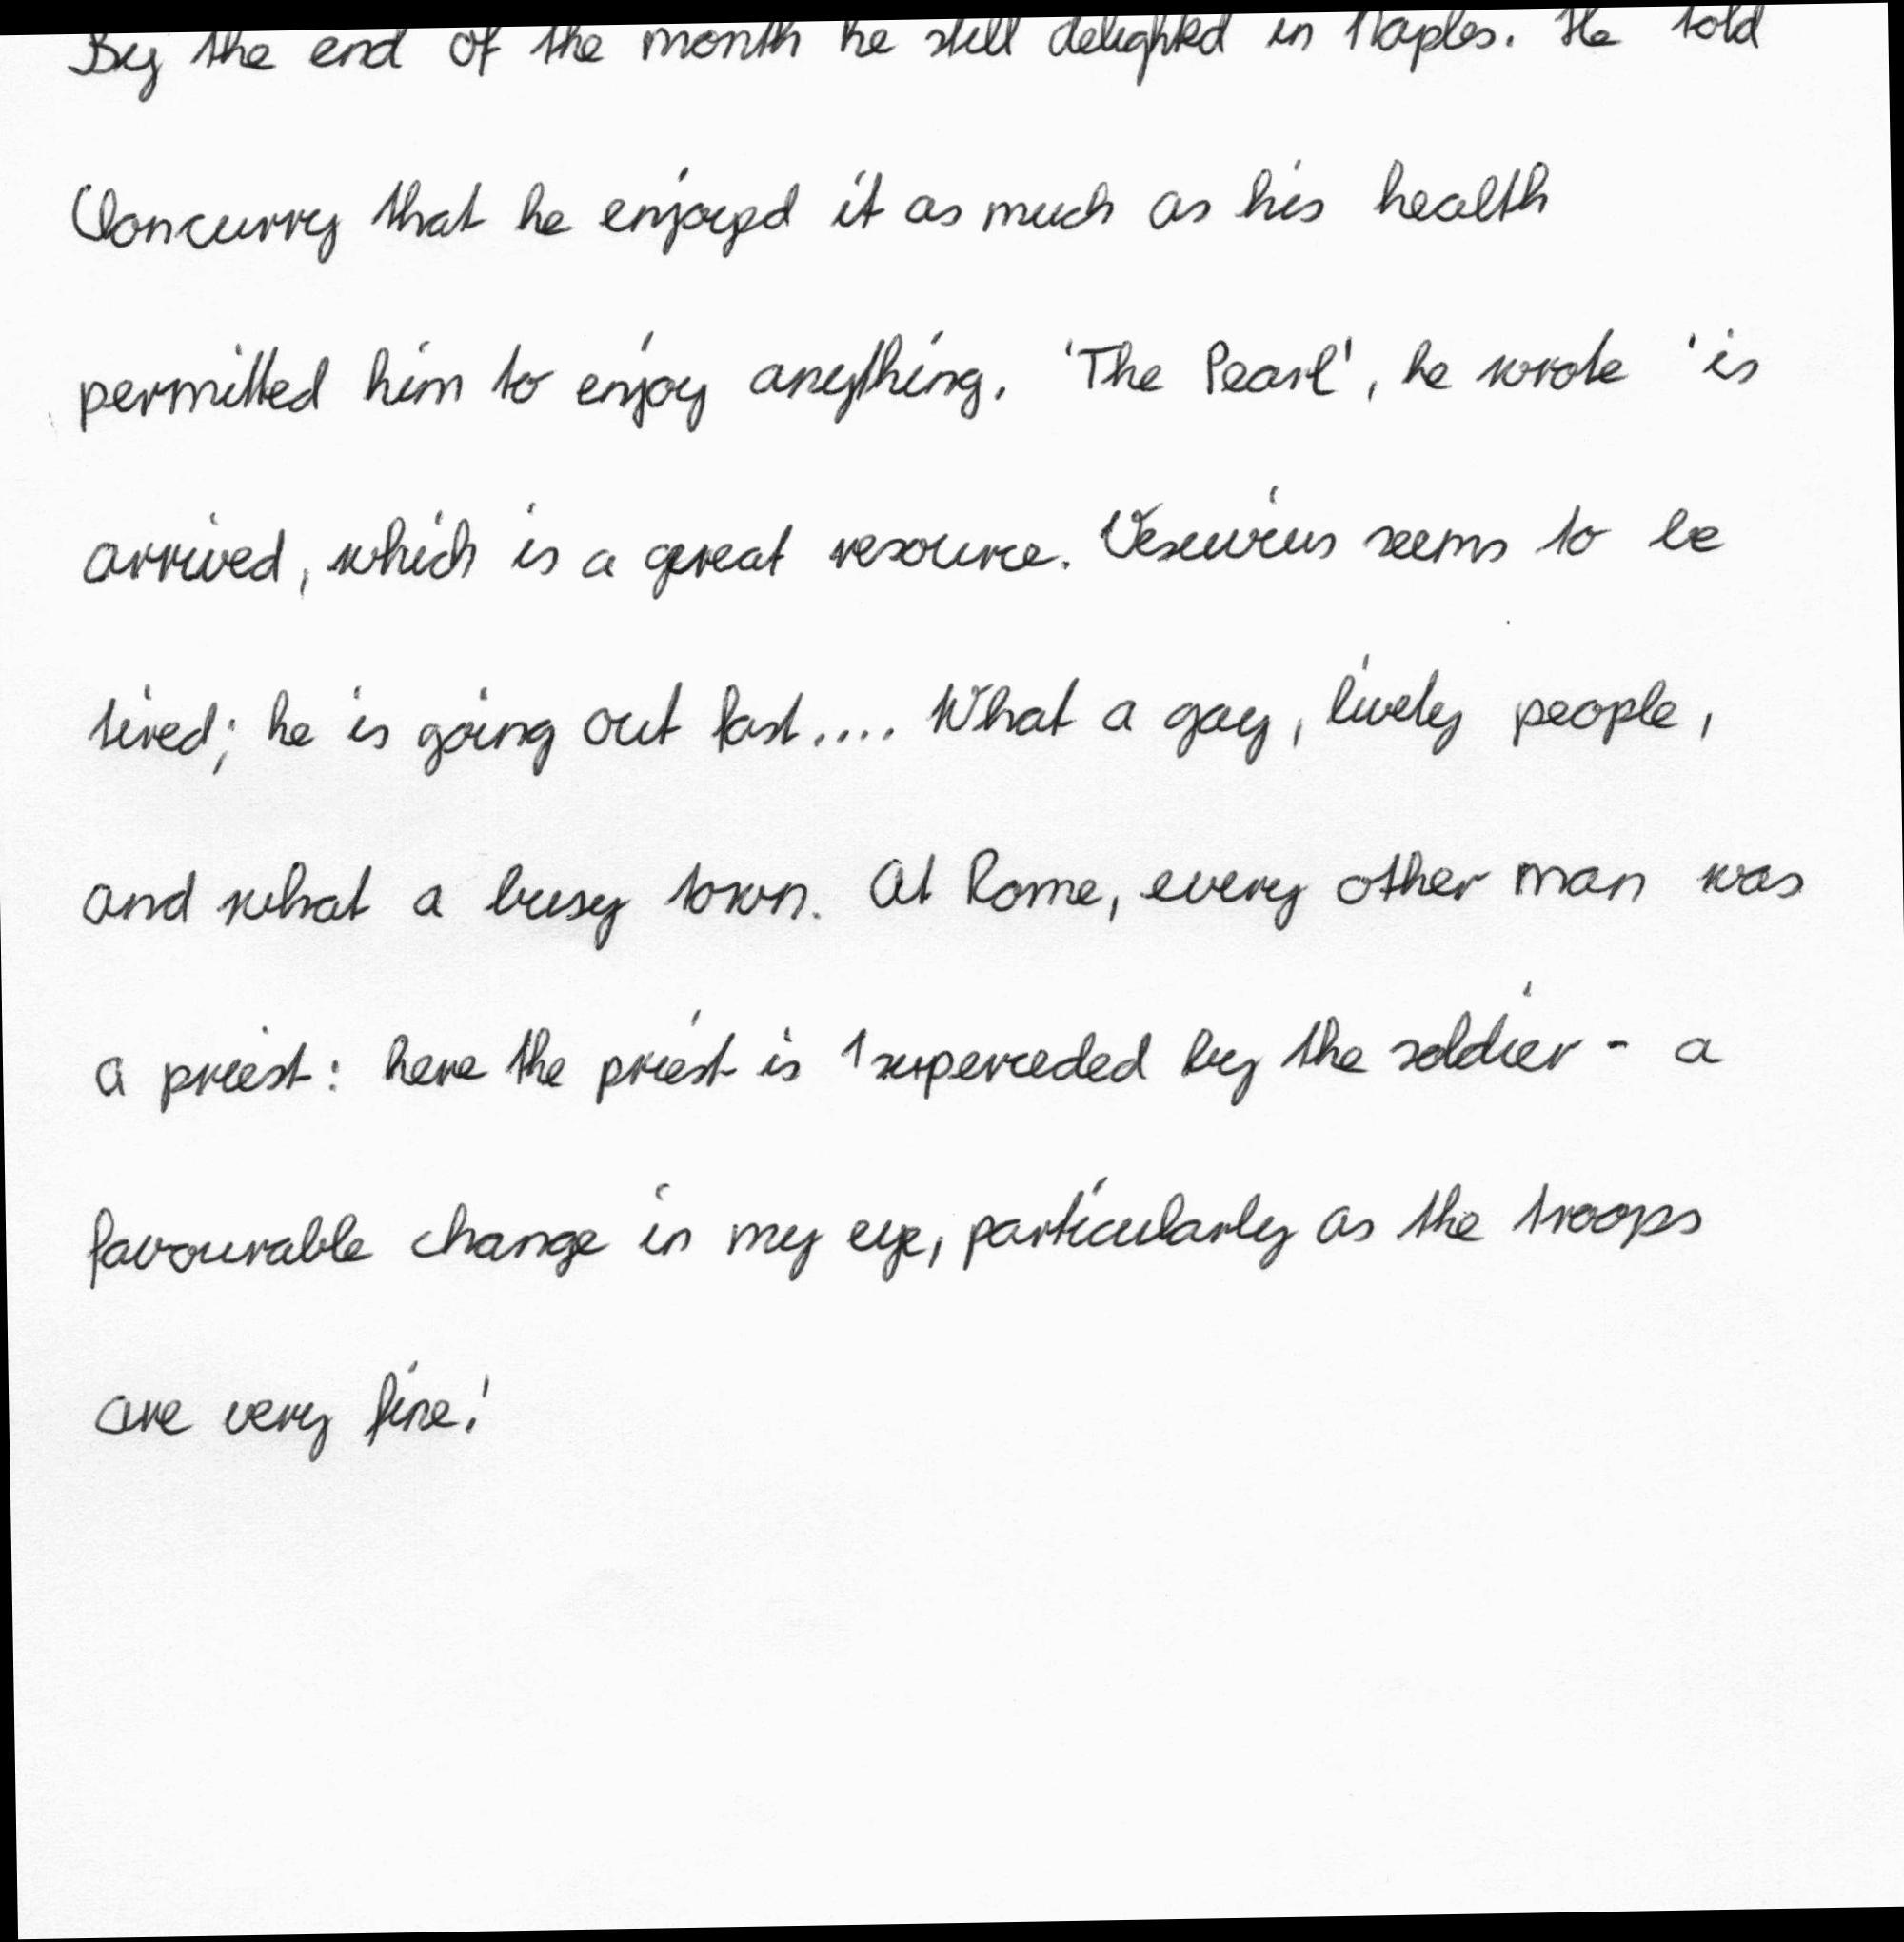 By the end of the month he still delighted in Naples. He told
Cloncurry that he enjoyed it as much as his health
permitted him to enjoy anything. 'The Pearl', he wrote 'is
arrived, which is a great resource. Vesuvius seems to be
tired; he is going out fast.... What a gay, lively people,
and what a busy town. At Rome, every other man was
a priest: here the priest is superceded by the soldier - a
favourable change in my eye, particularly as the troops
are very fine.'